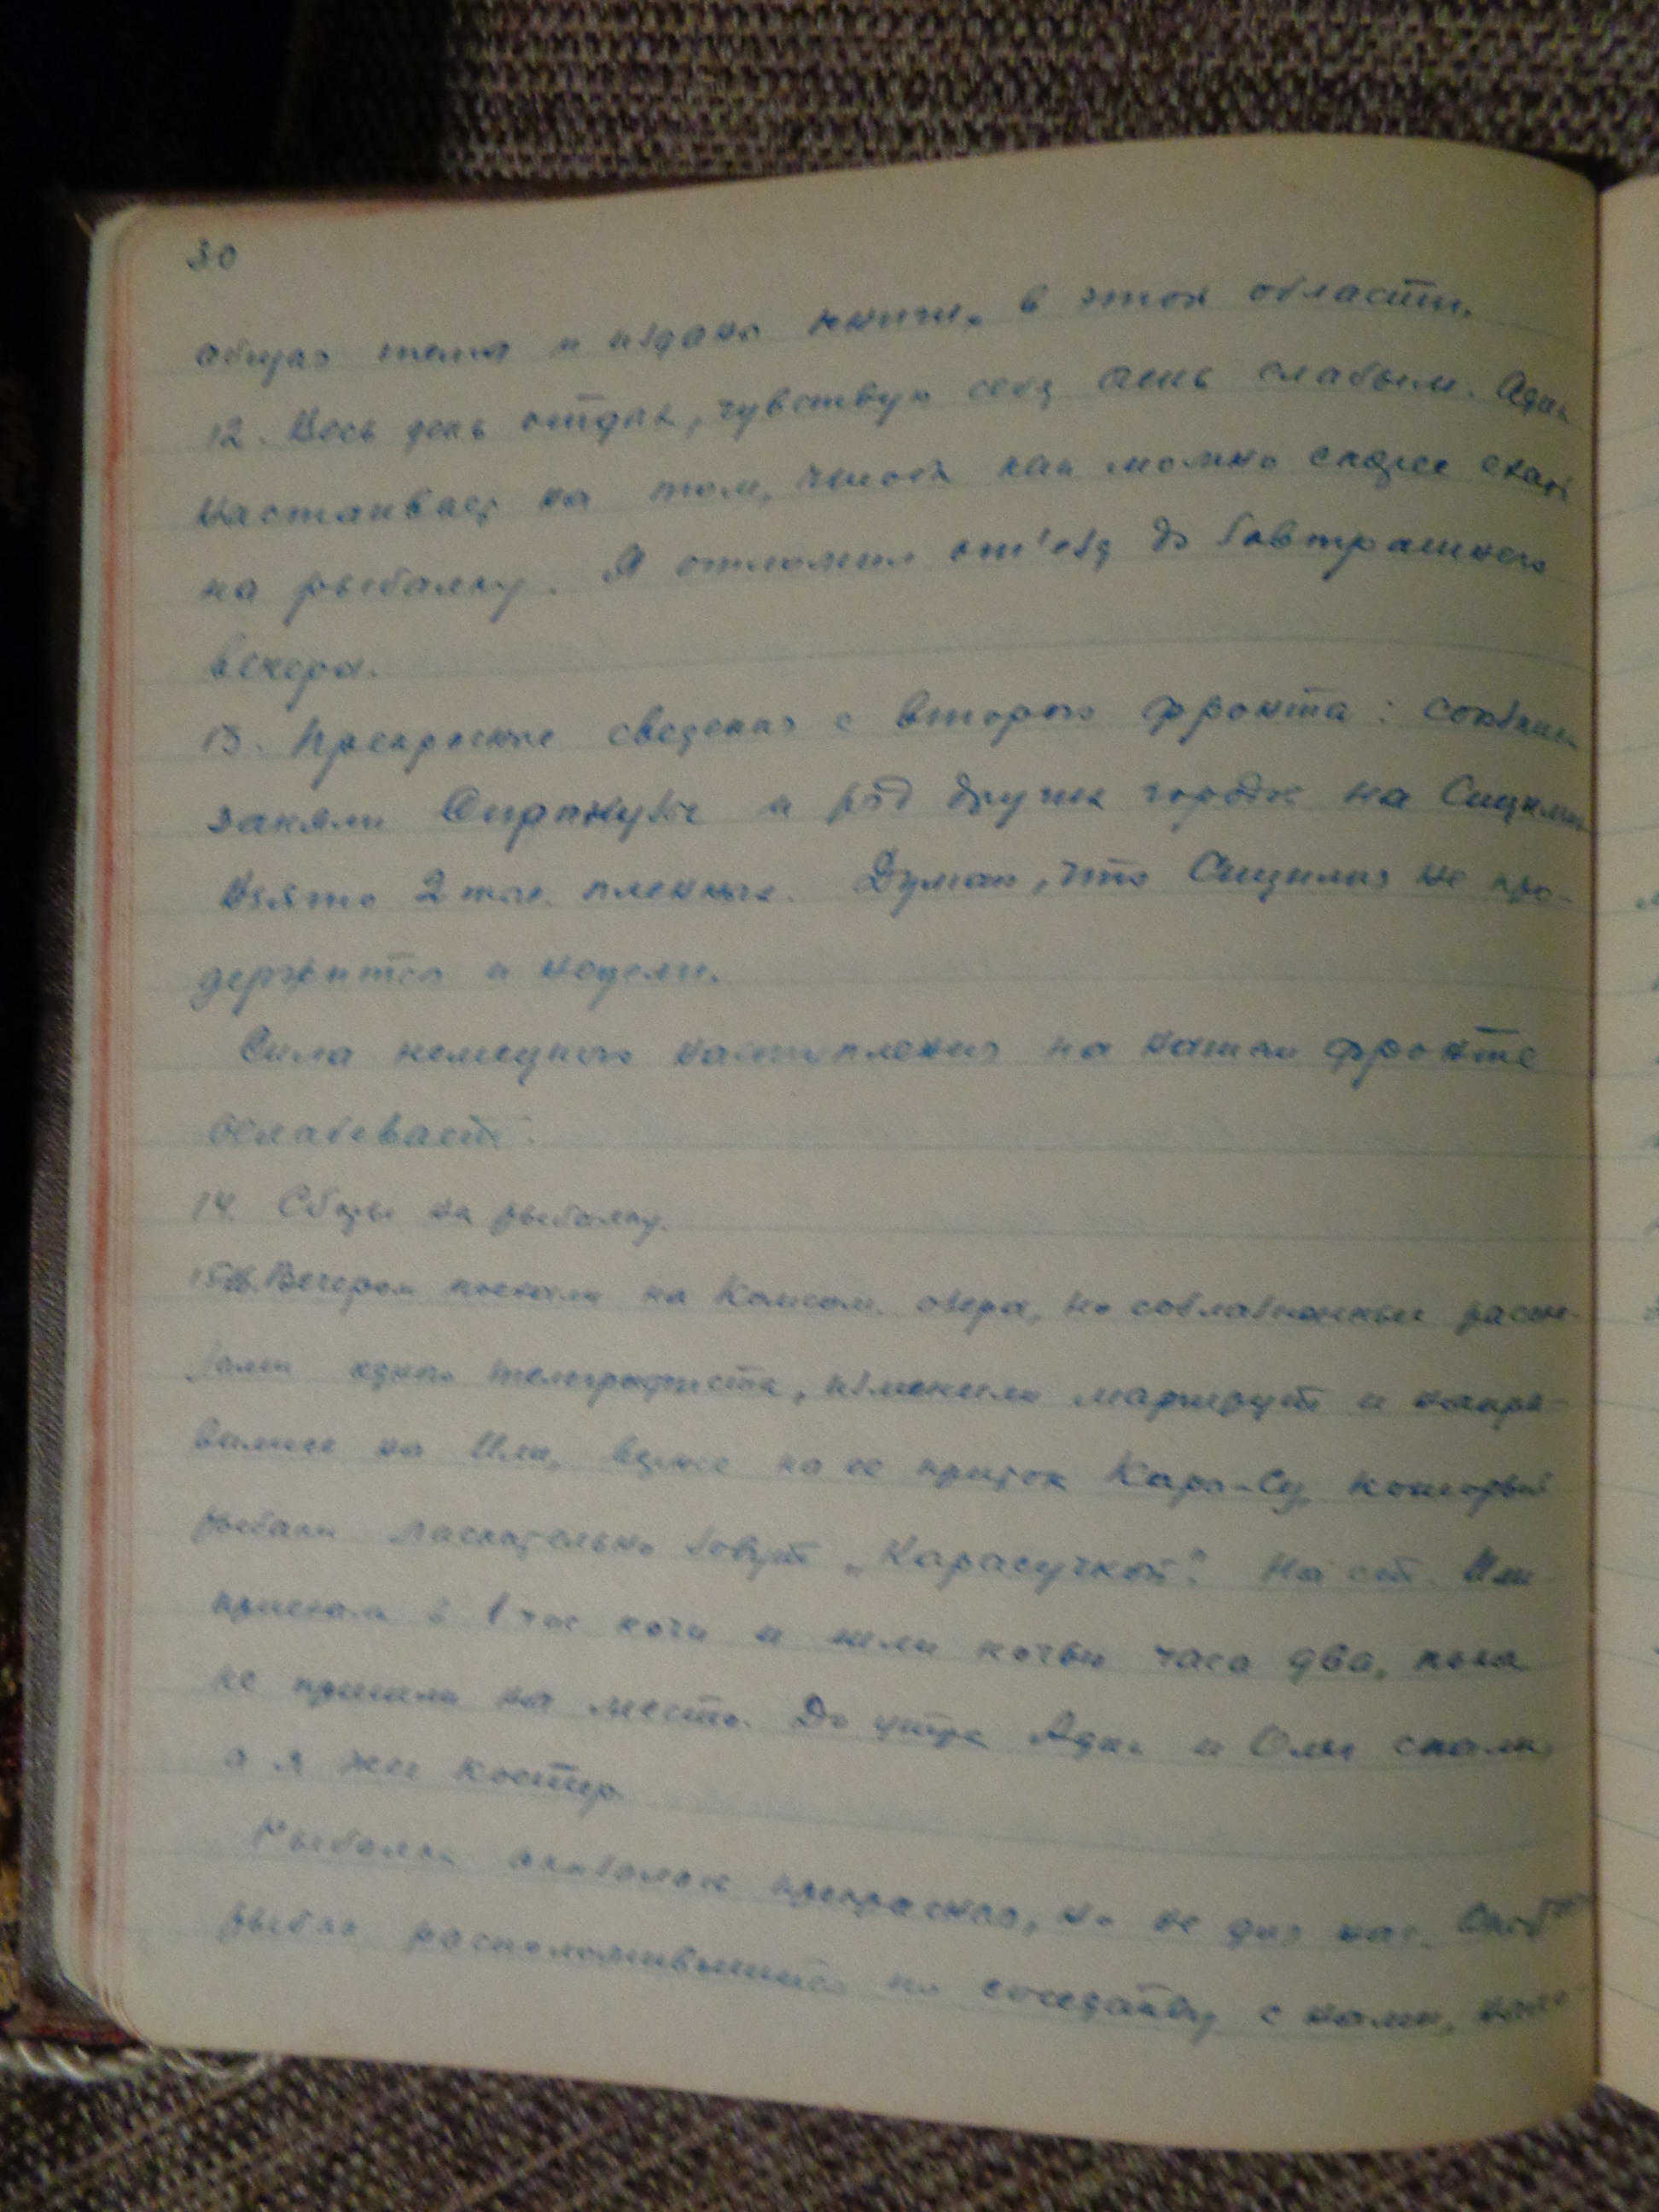 30
общая тема и издана книга в этой области.
12. Весь день отдых, чувствую себя очень слабым. Адик
настаивает на том, чтобы как можно скорее ехать
на рыбалку. Я отложил от'езд до завтрашнего
вечера.
13. Прекрасные сведения с второго фронта: союзники
заняли Сиракузы и ряд других городов на Сицилии
Взято 2 тыс. пленных. Думаю, что Сицилия не про-
держится и недели.
Сила немецкого наступления на нашем фронте
ослабевает.
14. Сборы на рыбалку.
Вечером поехали на Комсом. озера, но соблазненные расска-
зами одного телеграфиста, изменили маршрут и напра-
вились на Или, на ее приток Кара-Су, который
рыбаки ласкательно зовут „Карасучкой". На ст. Или
приехали в 1 час ночи и шли ночью часа два, пока
не пришли на место. До утра Адик и Олег спали,
а я жег костер.
Рыбалка оказалась прекрасной, но не для нас.
рыбак расположившийся по соседству с нами,